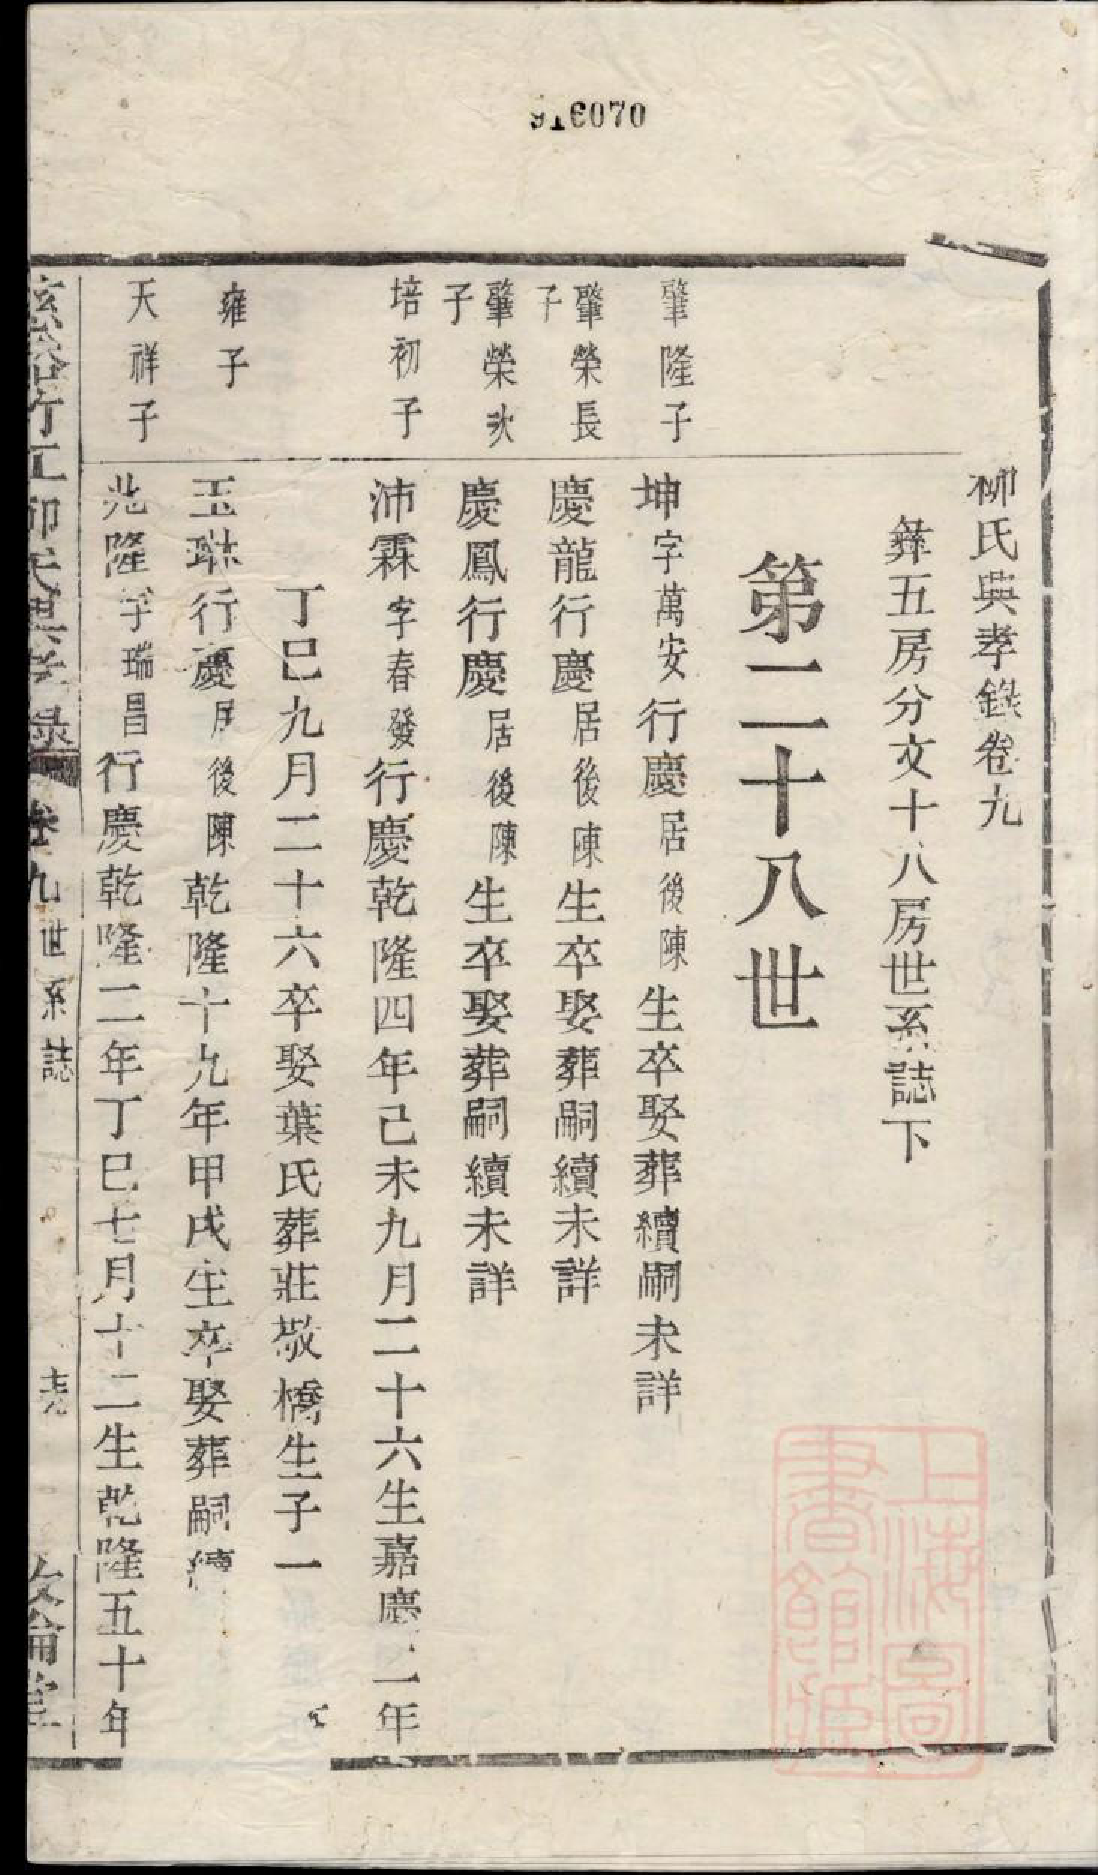 916070
柳氏興孝錄卷九
彝五房分文十八房世系誌下
第二十八世
肇隆子
坤字萬安行慶居後陳生卒娶葬續嗣未詳
肇榮長子
慶龍行慶居後陳生卒娶葬嗣續未詳
肇榮次子
慶鳳行慶居後陳生卒娶葬嗣續未詳
培初子
沛霖字春發行慶乾隆四年己未九月二十六生嘉慶二年
丁巳九月二十六卒娶葉氏葬莊敬橋生子一
雍子
玉琳行慶居後陳乾隆十九年甲戌生卒娶葬嗣續
天祥子
兆隆字瑞昌行慶乾隆二年丁巳七月十二生乾隆五十年
慈谿竹江柳氏興孝錄 卷九世系誌 敘倫堂
上海圖書館藏